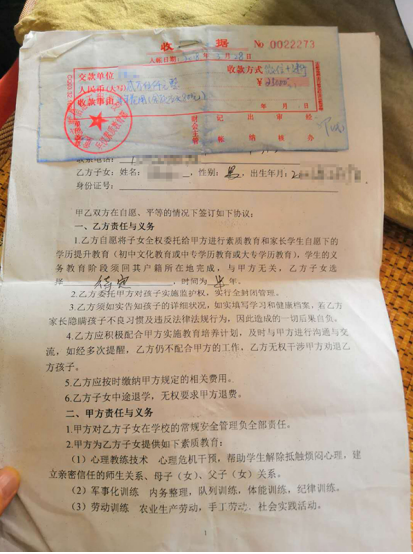 收 据
№ 0022273
入帐日期
28
交款单位
收款方式
人民币(大写)
收款事由
年 月 日
乙方子女：姓名： ，性别：男，出生年月：2
身份证号：
甲乙双方在自愿、平等的情况下签订如下协议：
一、乙方责任与义务
1.乙方自愿将子女全权委托给甲方进行素质教育和家长学生自愿下的
学历提升教育（初中文化教育或中专学历教育或大专学历教育），学生的义
务教育阶段须回其户籍所在地完成，与甲方无关，乙方子女选
择 待定 ，时间为 半 年。
2.乙方委托甲方对孩子实施监护权，实行全封闭管理。
3.乙方须如实告知孩子的详细状况，如实填写学习和健康档案，若乙方
家长隐瞒孩子不良习惯及违反法律法规行为，因此造成的一切后果自负。
4.乙方应积极配合甲方实施教育培养计划，及时与甲方进行沟通与交
流，如经多次提醒，乙方仍不配合甲方的工作，乙方无权干涉甲方劝退乙
方孩子。
5.乙方应按时缴纳甲方规定的相关费用。
6.乙方子女中途退学，无权要求甲方退费。
二、甲方责任与义务
1.甲方对乙方子女在学校的常规安全管理负全部责任。
2.甲方为乙方子女提供如下素质教育：
（1）心理教练技术 心理危机干预，帮助学生解除抵触烦闷心理，建
立亲密信任的师生关系、母子（女）、父子（女）关系。
（2）军事化训练 内务整理，队列训练，体能训练，纪律训练。
（3）劳动训练 农业生产劳动，手工劳动、社会实践活动。
1